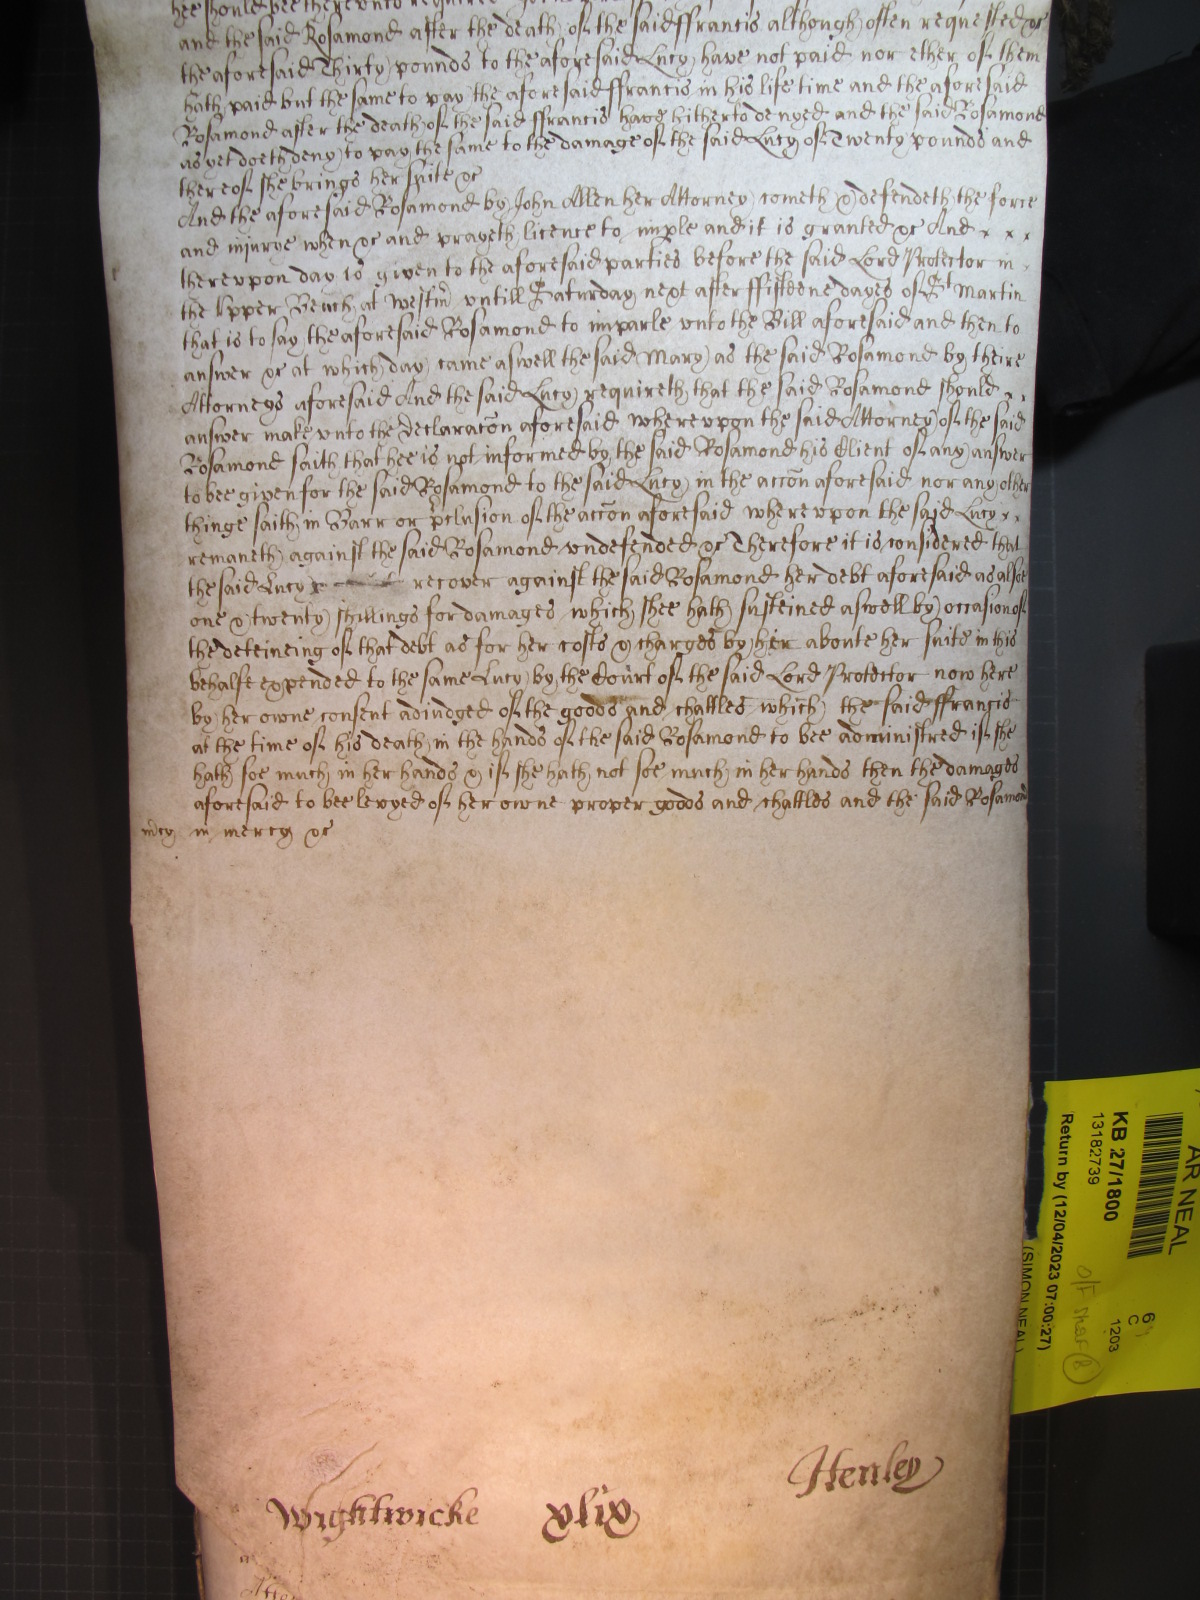 hee should bee there unto required
and the said Rosamond after the death of the said ffrancis although often requested &c
the aforesaid Thirty pounds to the aforesaid Lucy have not paid nor ether of them
hath paid but the same to pay the aforesaid ffrancis in his life time and the aforesaid
Rosamond after the death of the said ffrancis have hitherto denyed and the said Rosamond
as yet doeth deny to pay the same to the damage of the said Lucy of Twenty pounds and
thereof she brings her suite &c
And the aforesaid Rosamond by John Allen her Attorney cometh & defendeth the force
and injurye when &c and prayeth licence to imple and it is granted &c And
therevpon day is given to the aforesaid parties before the said Lord Protector in
the Vpper Bench at Westm̄ vntill Saturday next after ffifteene dayes of St Martin
that is to say the aforesaid Rosamond to imparle vnto the Bill aforesaid and then to
answer &c at which day came aswell the said Mary as the said Rosamond by theire
Attorneys aforesaid And the said Lucy requireth that the said Rosamond should
answer make vnto the Declaracōn aforesaid wherevpon the said Attorney of the said
Rosamond saith that hee is not informed by the said Rosamond his Client of any answer
to bee given for the said Rosamond to the said Lucy in the accōn aforesaid nor any other
thinge saith in Barr or p̄clusion of the accōn aforesaid wherevpon the said Lucy
remaneth against the said Rosamond vndefended &c Therefore it is considered that
the said Lucy recover against the said Rosamond her debt aforesaid as alsoe
one & twenty shillings for damages which shee hath susteined aswell by occasion of
the deteineing of that debt as for her costs & charges by her aboute her suite in this
behalfe expended to the same Lucy by the Court of the said Lord Protector now here
by her owne consent adiudged of the goods and chattles which the said ffrancis
at the time of his death in the hands of the said Rosamond to bee administred if she
hath soe much in her hands & if she hath not soe much in her hands then the damages
aforesaid to bee levyed of her owne proper goods and chattles and the said Rosamond
m̄cy in mercy &c
Henley
Wightwicke xlix
AR NEAL
KB 27/1800
13182739
Return by (12/04/2023 07:00:27)
(SIMON NEAL)
1203
C